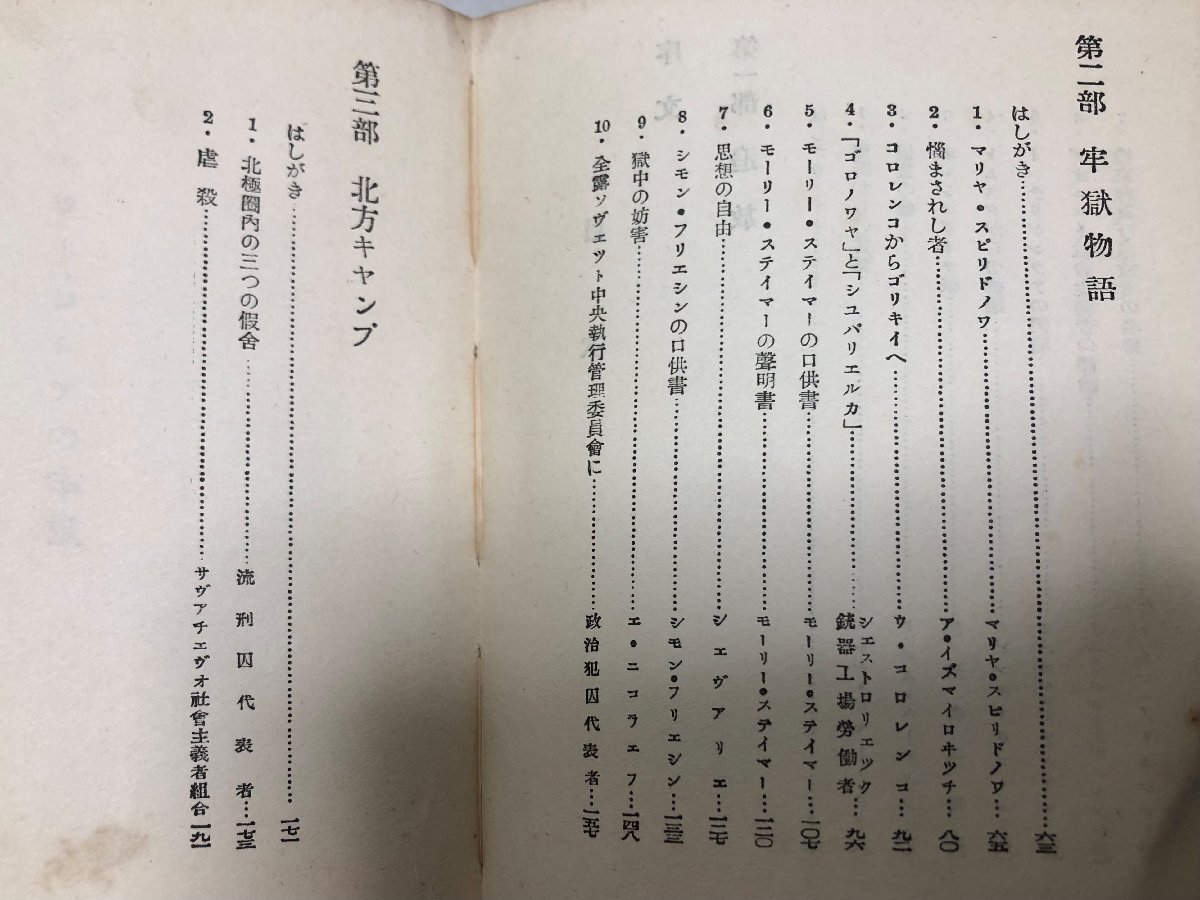 第二部 牢獄物語
はしがき……六三
1・マリヤ・スピリドノワ……マリヤ・スピリドノワ…六五
2・惱まされし者……ア・イズマイロヰツチ…八〇
3・コロレンコからゴリキイへ……ウ・コロレンコ…九二
4・「ゴロノワヤ」と「シユパリエルカ」……シエストロリエツク銃器工場勞働者…九六
5・モーリー・ステイマーの口供書……モーリー・ステイマー…一〇七
6・モーリー・ステイマーの聲明書……モーリー・ステイマー…一二〇
7・思想の自由……シエヴアリエ…一二七
8・シモン・フリエシンの口供書……シモン・フリエシン…一三三
9・獄中の妨害……エ・ニコラエフ…一四八
10・全露ソヴエツト中央執行管理委員會に……政治犯囚代表者…一五七
第三部 北方キヤンプ
はしがき……一七一
1・北極圈内の三つの假舍……流刑囚代表者…一七三
2・虐殺……サヴアチエヴオ社會主義者組合一九一